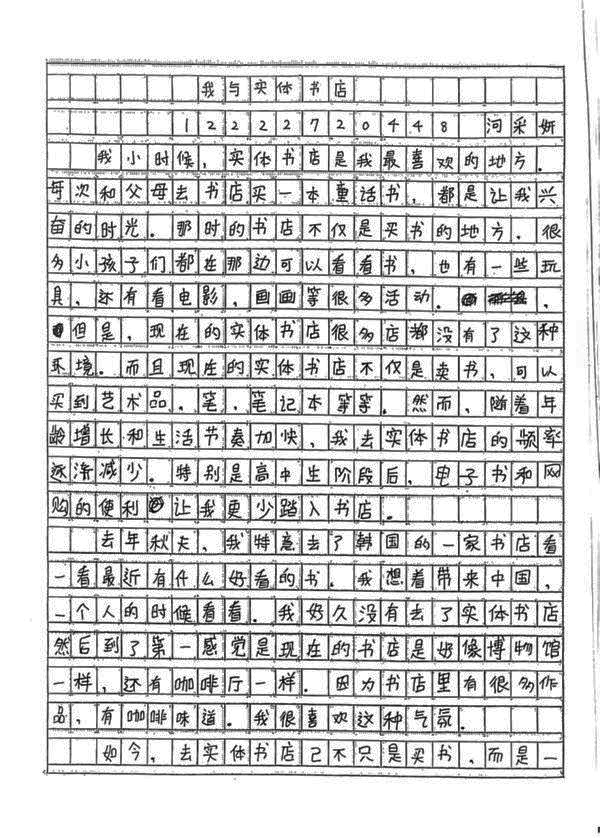 我与实体书店
12222720448 河采妍
我小时候，实体书店是我最喜欢的地方.
每次和父母去书店买一本童话书，都是让我兴
奋的时光.那时的书店不仅是买书的地方.很
多小孩子们都在那边可以看看书，也有一些玩
具，还有看电影，画画等很多活动.，
但是，现在的实体书店很多店都没有了这种
环境。而且现在的实体书店不仅是卖书，可以
买到艺术品，笔，笔记本等等.然而，随着年
龄增长和生活节奏加快，我去实体书店的频率
逐渐减少.特别是高中生阶段后，电子书和网
购的便利让我更少踏入书店.
去年秋天，我特意去了韩国的一家书店看
一看最近有什么好看的书.我想着带来中国，
一个人的时候看看.我好久没有去了实体书店
然后到了第一感觉是现在的书店是好像博物馆
一样，还有咖啡厅一样.因为书店里有很多作
品，有咖啡味道.我很喜欢这种气氛.
如今，去实体书店已不只是买书，而是一